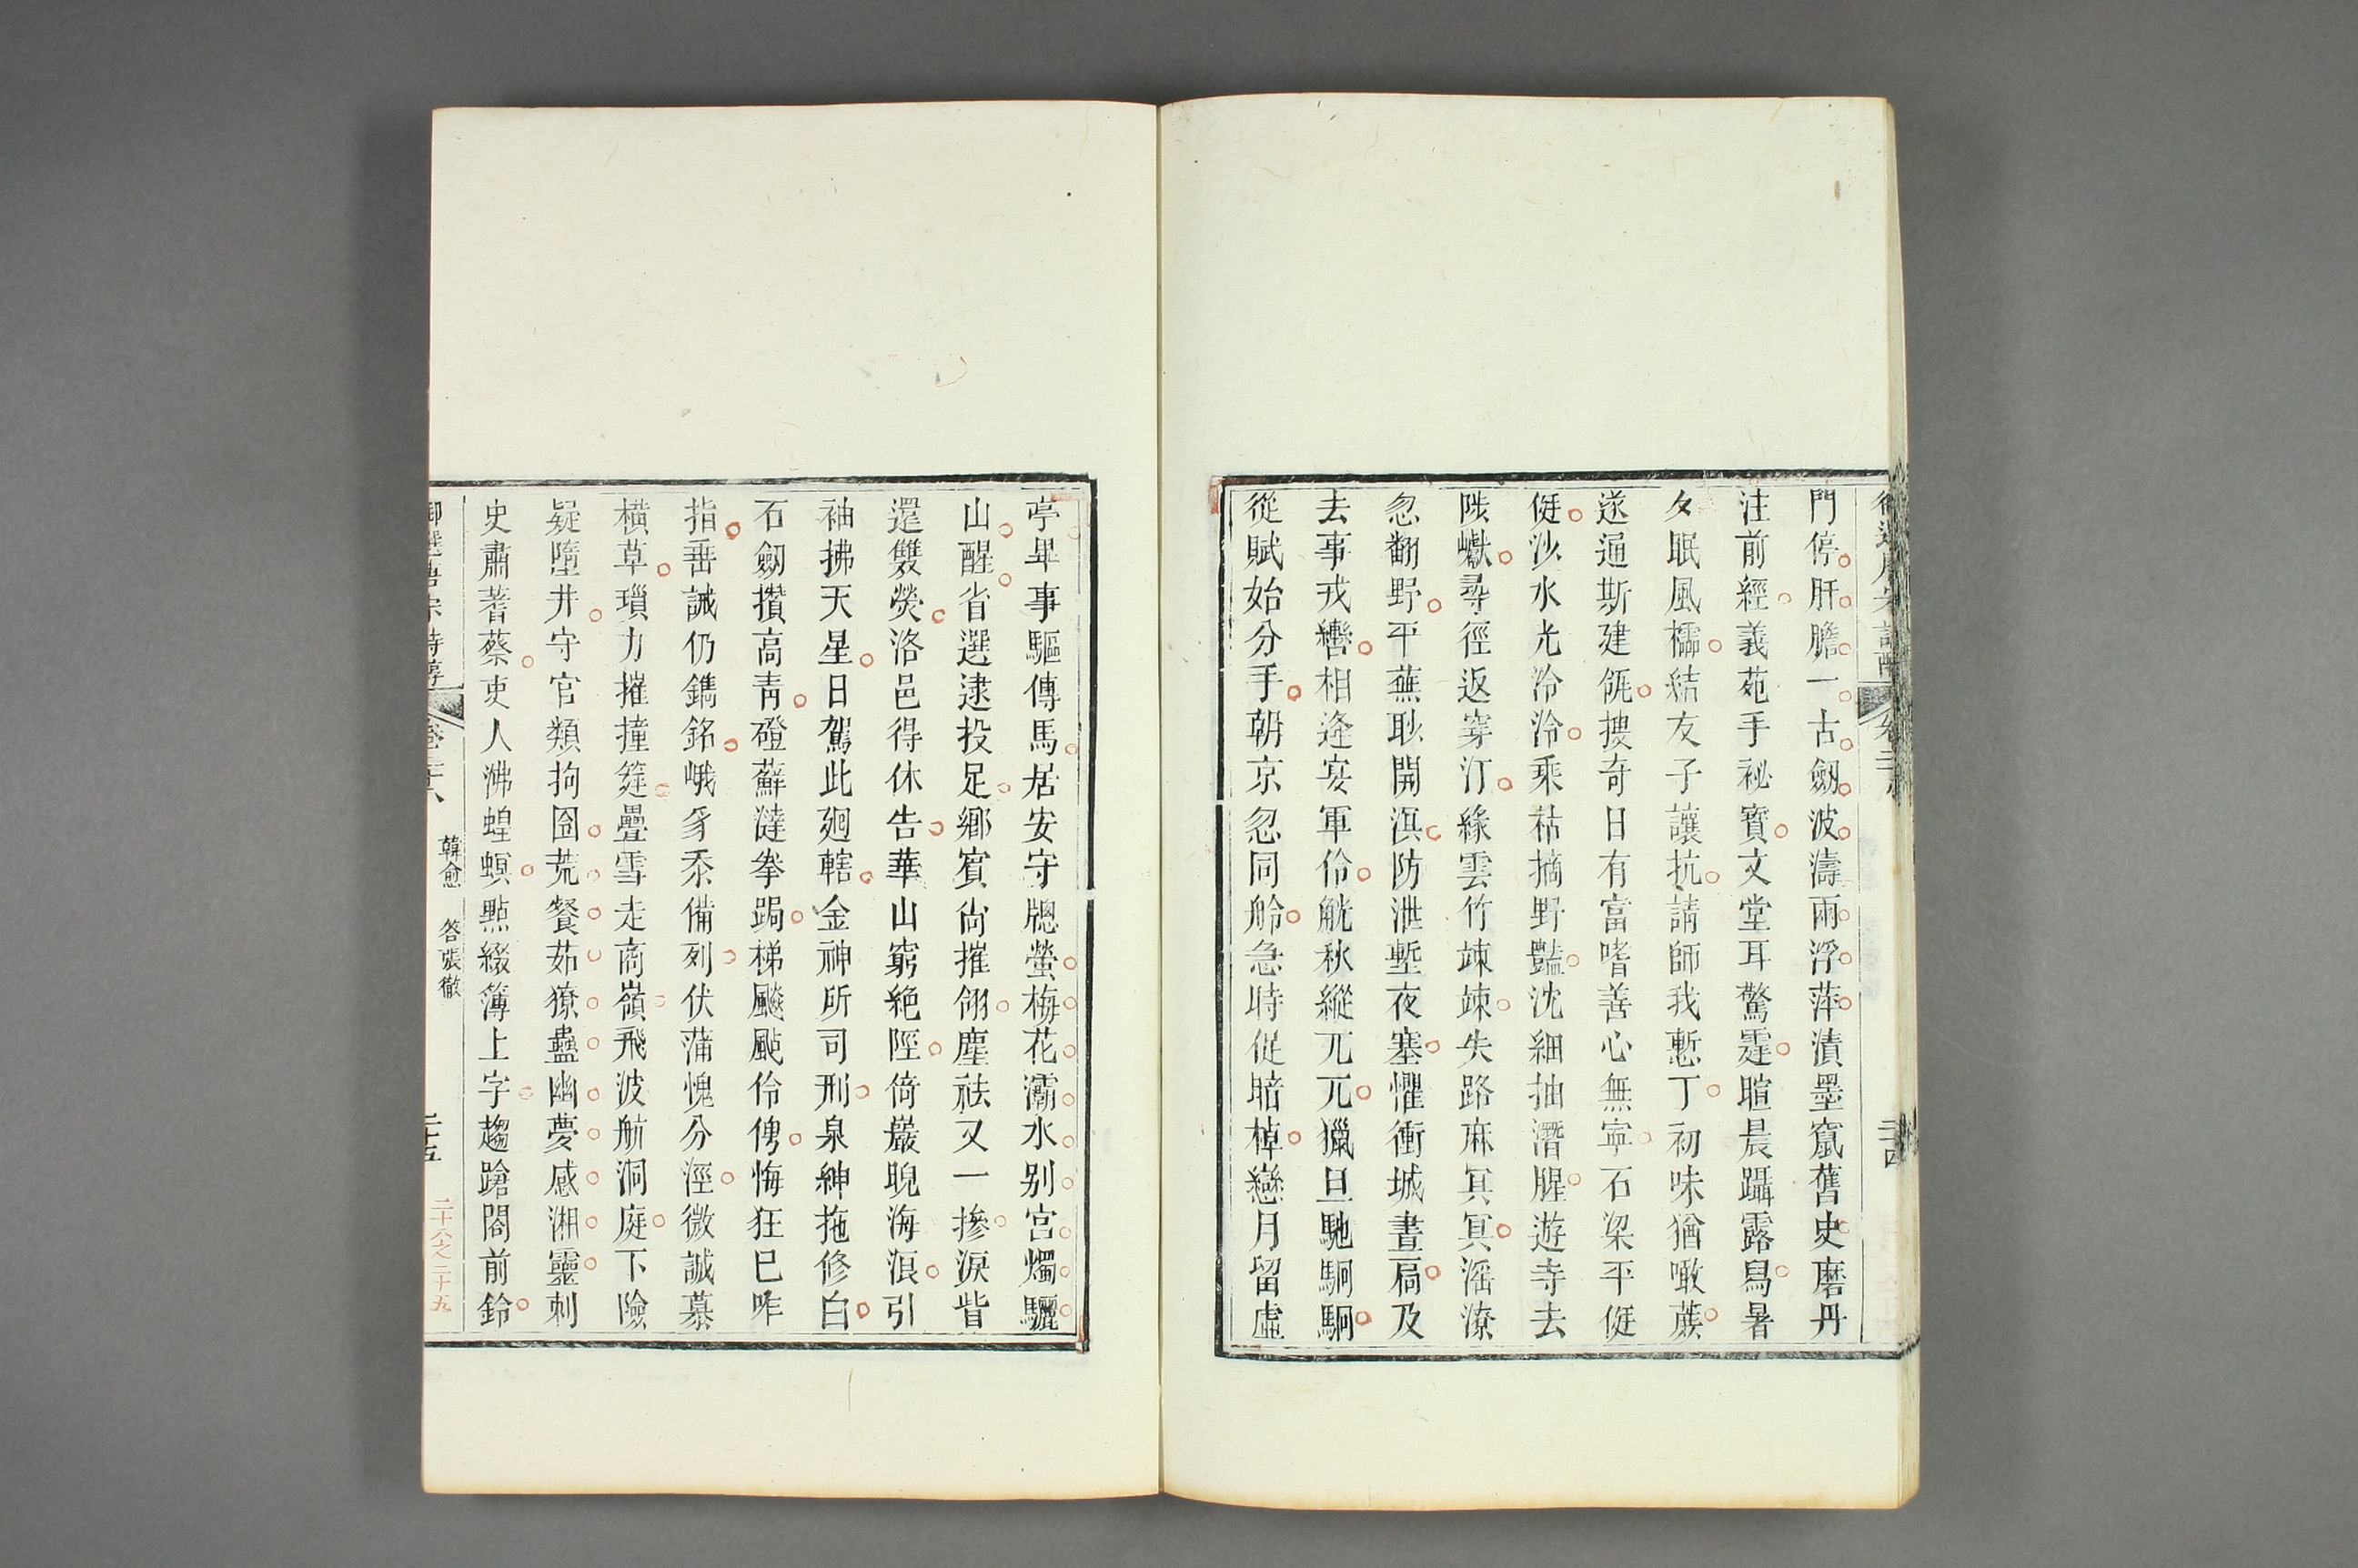 御選唐宋詩醇 卷二十八 二十四
門停肝膽一古劒波濤兩浮萍漬墨竄舊史磨丹
注前經義苑手祕寶文堂耳驚霆暄晨躡露舄暑
夕眠風櫺結友子讓抗請師我慙丁初味猶噉蔗
遂通斯建瓴搜奇日有富嗜善心無寧石梁平侹
侹沙水光泠泠乘枯摘野豔沈細抽潛腥遊寺去
陟巘尋徑返穿汀緣雲竹竦竦失路麻冥冥滛潦
忽翻野平蕪眇開溟防泄塹夜塞懼衝城晝扃及
去事戎轡相逢宴軍伶觥秋縱兀兀獵旦馳駉駉
從賦始分手朝京忽同舲急時促暗棹戀月留虛
亭畢事驅傳馬居安守牕螢梅花灞水別宮燭驪
山醒省選逮投足鄉賓尙摧翎塵祛又一摻淚眥
還雙熒洛邑得休告華山窮絶陘倚巖睨海浪引
袖拂天星日駕此廻轄金神所司刑泉紳拖修白
石劒攢高青磴蘚澾拳跼梯飇颭伶俜悔狂已咋
指垂誡仍鐫銘峨豸忝備列伏蒲愧分涇微誠慕
橫草瑣力摧撞筳疊雪走商嶺飛波航洞庭下險
疑墮井守官類拘囹荒餐茹獠蠱幽夢感湘靈刺
史肅蓍蔡吏人沸蝗螟點綴簿上字趨蹌閤前鈴
御選唐宋詩醇 卷二十八 韓愈 答張徹 二十五
二十八之二十五